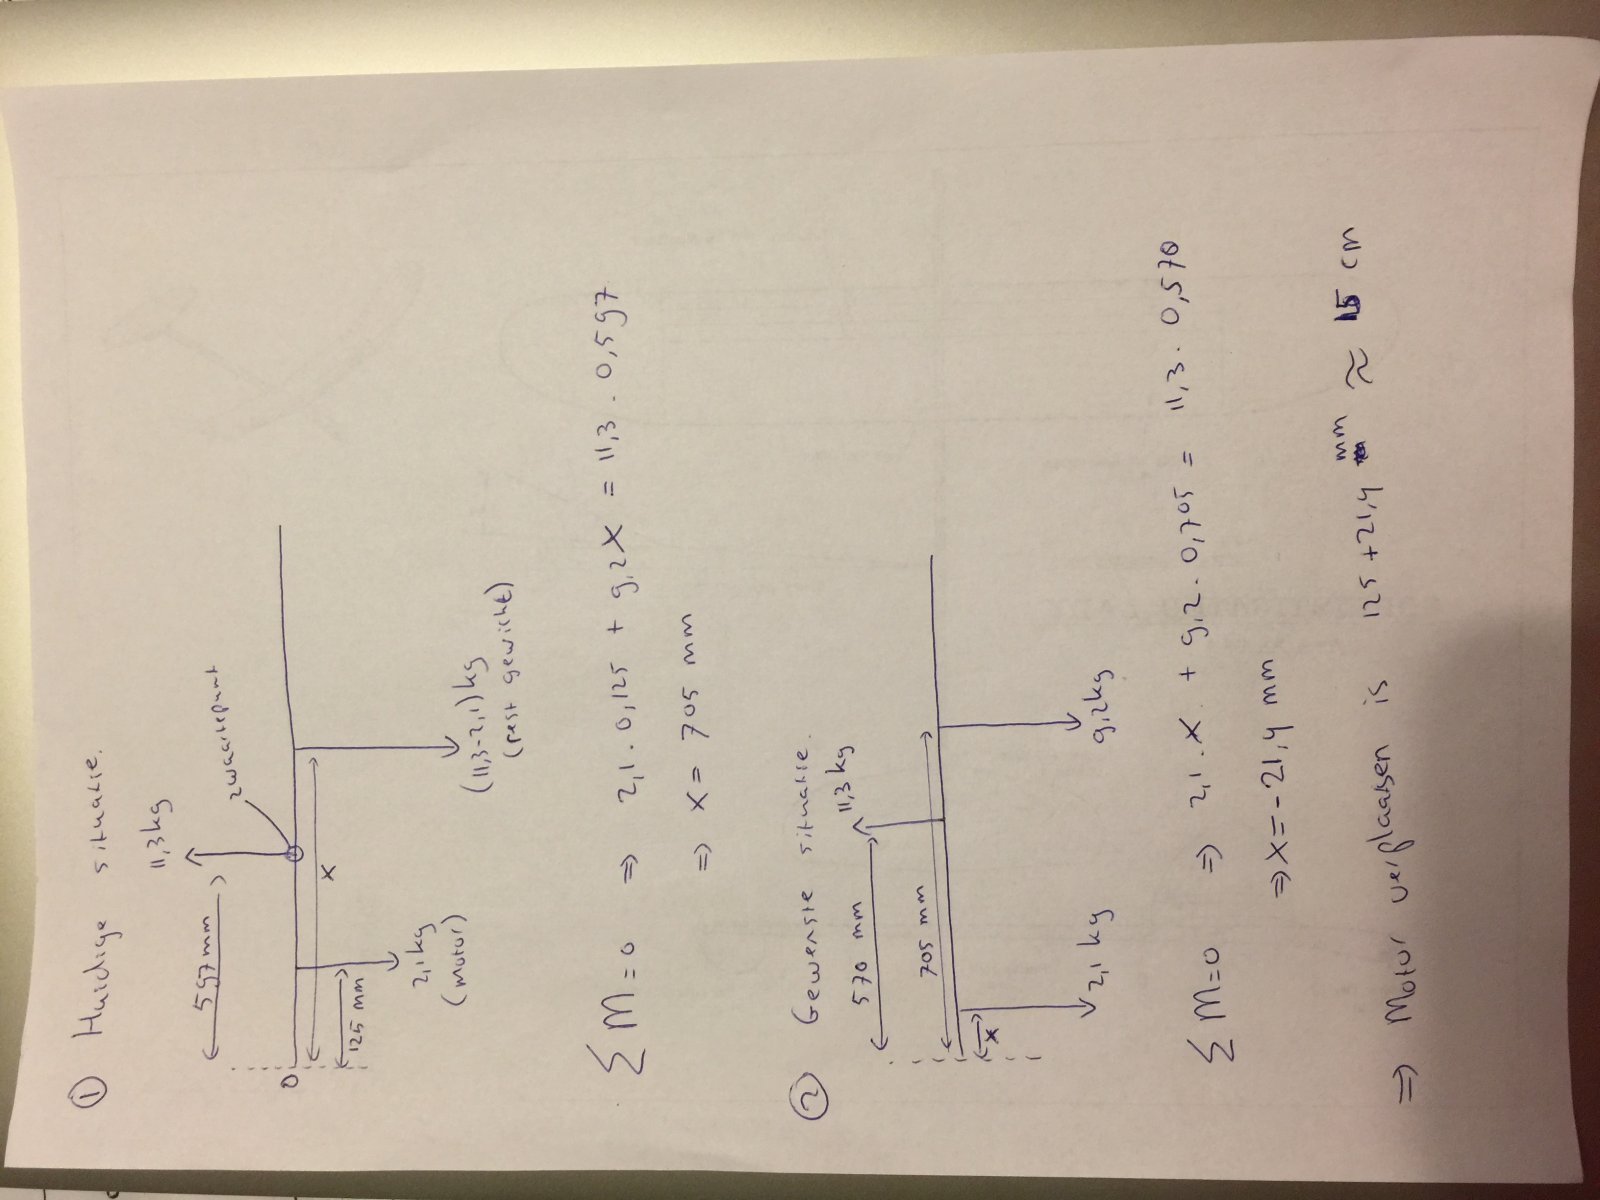 ① Huidige situatie.
11,3 kg
597 mm
zwaartepunt
0
x
125 mm
2,1 kg
(motor)
(11,3-2,1) kg
(rest gewicht)
∑ M=0 ⇒ 2,1 . 0,125 + 9,2 X = 11,3 . 0,597
⇒ X = 705 mm
② Gewenste situatie.
11,3 kg
570 mm
705 mm
x
2,1 kg
9,2 kg
∑ M=0 ⇒ 2,1 . X + 9,2 . 0,705 = 11,3 . 0,570
⇒ X = -21,4 mm
⇒ Motor verplaatsen is 125 + 21,4 mm ≈ 15 cm